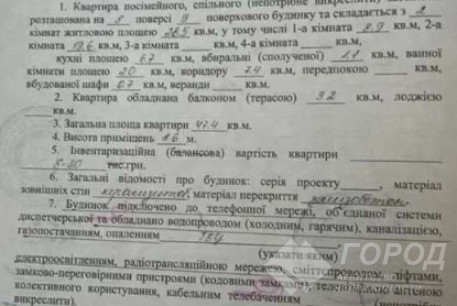 1. Квартира посімейного, спільного (непотрібне викреслити)
розташована на 8 поверсі 9 поверхового будинку та складається з 2
кімнат житловою площею 28,5 кв.м, у тому числі 1-а кімната 8.9 кв.м, 2-а
кімната 19.6 кв.м, 3-а кімната кв.м, 4-а кімната кв.м,
кухні площею 6.7 кв.м, вбиральні (сполученої) кв.м, ванної
кімнати площею 2.0 кв.м, коридору 7.4 кв.м, передпокою кв.м,
вбудованої шафи 0.7 кв.м, веранди кв.м.
2. Квартира обладнана балконом (терасою) 3.2 кв.м, лоджією
кв.м.
3. Загальна площа квартири 47.4 кв.м.
4. Висота приміщень м.
5. Інвентаризаційна (балансова) вартість квартири
тис.грн.
6. Загальні відомості про будинок: серія проекту , матеріал
зовнішніх стін матеріал перекриття
7. Будинок підключено до телефонної мережі, об'єднаної системи
диспетчерської та обладнано водопроводом (холодним, гарячим), каналізацією,
газопостачанням, опаленням
(указати яким)
електроосвітленням, радіотрансляційною мережею, сміттєпроводом, ліфтами,
замково-переговорними пристроями (кодовими замками), телевізійною антеною
колективного користування, кабельним телебаченням (непотрібне
викреслити).
ГОРОД